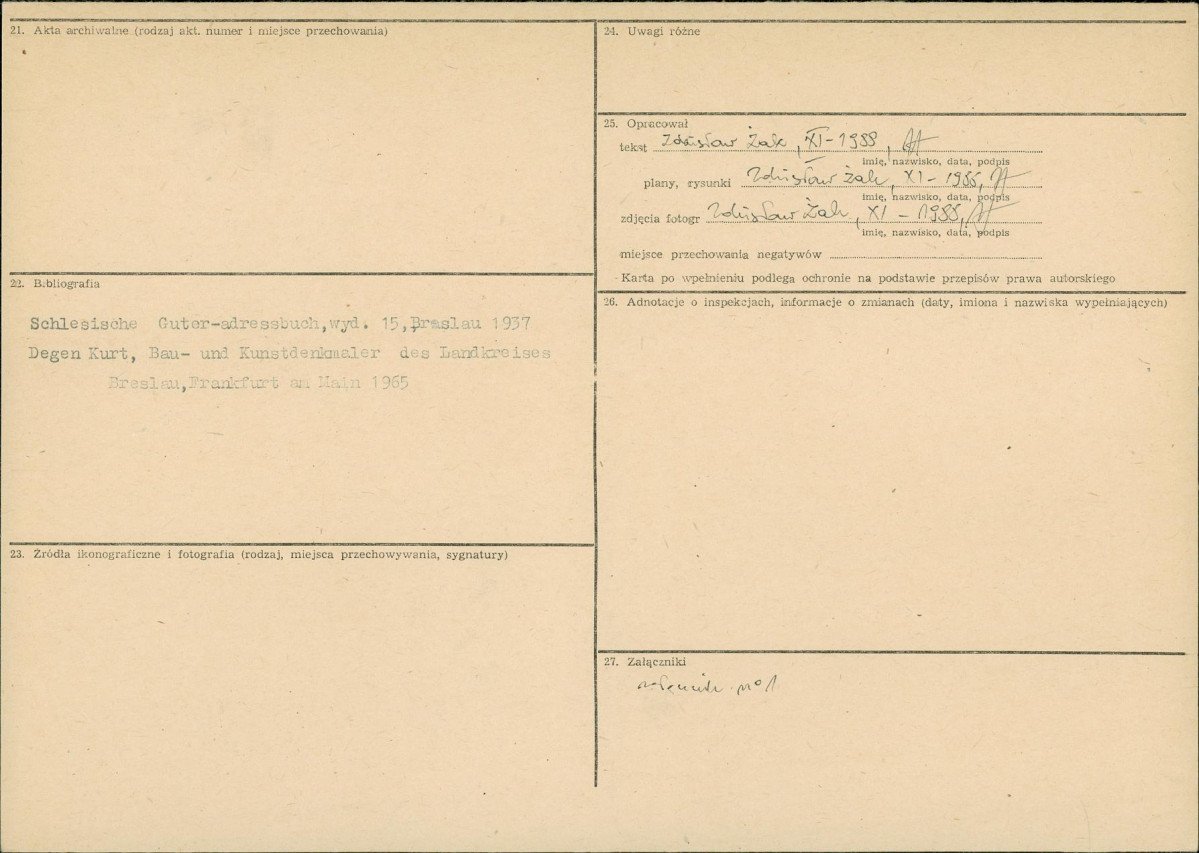 21. Akta archiwalne (rodzaj akt. numer i miejsce przechowania)
22. Bibliografia
Schlesische Guter-adressbuch,wyd. 15,Braslau 1937
Degen Kurt, Bau- und Kunstdenkmaler des Landkreises
Breslau,Frankfurt am Main 1965
23. Źródła ikonograficzne i fotografia (rodzaj, miejsca przechowywania, sygnatury)
24. Uwagi różne
25. Opracował
tekst Zdzisław Żak, XI-1988,
imię, nazwisko, data, podpis
plany, rysunki Zdzisław Żak, XI - 1988,
imię, nazwisko, data, podpis
zdjęcia fotogr Zdzisław Żak, XI - 1988,
imię, nazwisko, data, podpis
miejsce przechowania negatywów
Karta po wpełnieniu podlega ochronie na podstawie przepisów prawa autorskiego
26. Adnotacje o inspekcjach, informacje o zmianach (daty, imiona i nazwiska wypełniających)
27. Załączniki
nº 1